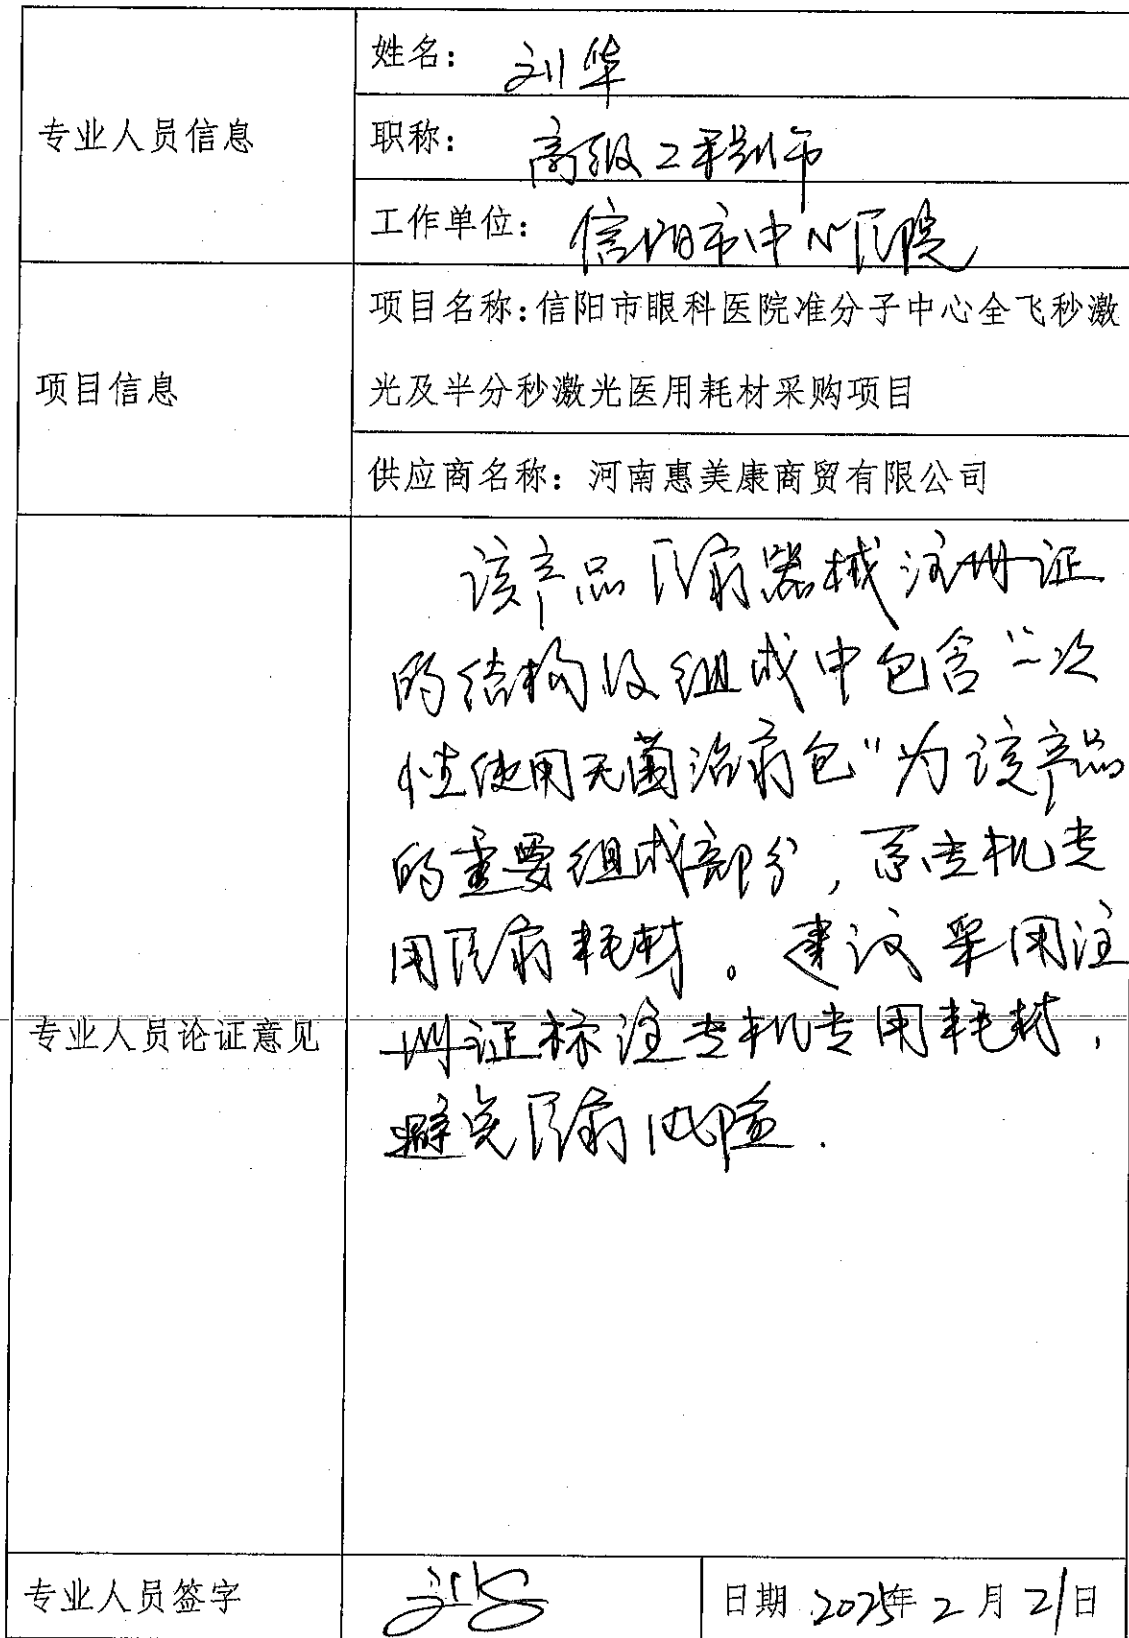 姓名：刘华
专业人员信息
职称：高级工程师
工作单位：信阳市中心医院
项目名称:信阳市眼科医院准分子中心全飞秒激
项目信息
光及半分秒激光医用耗材采购项目
供应商名称：河南惠美康商贸有限公司
该产品医疗器械注册证
的结构及组成中包含“一次
性使用无菌治疗包”为该产品
的重要组成部分，系专机专
用医疗耗材。建议采用注
专业人员论证意见
册证标注专机专用耗材，
避免医疗风险.
专业人员签字
日期 2025年2月21日